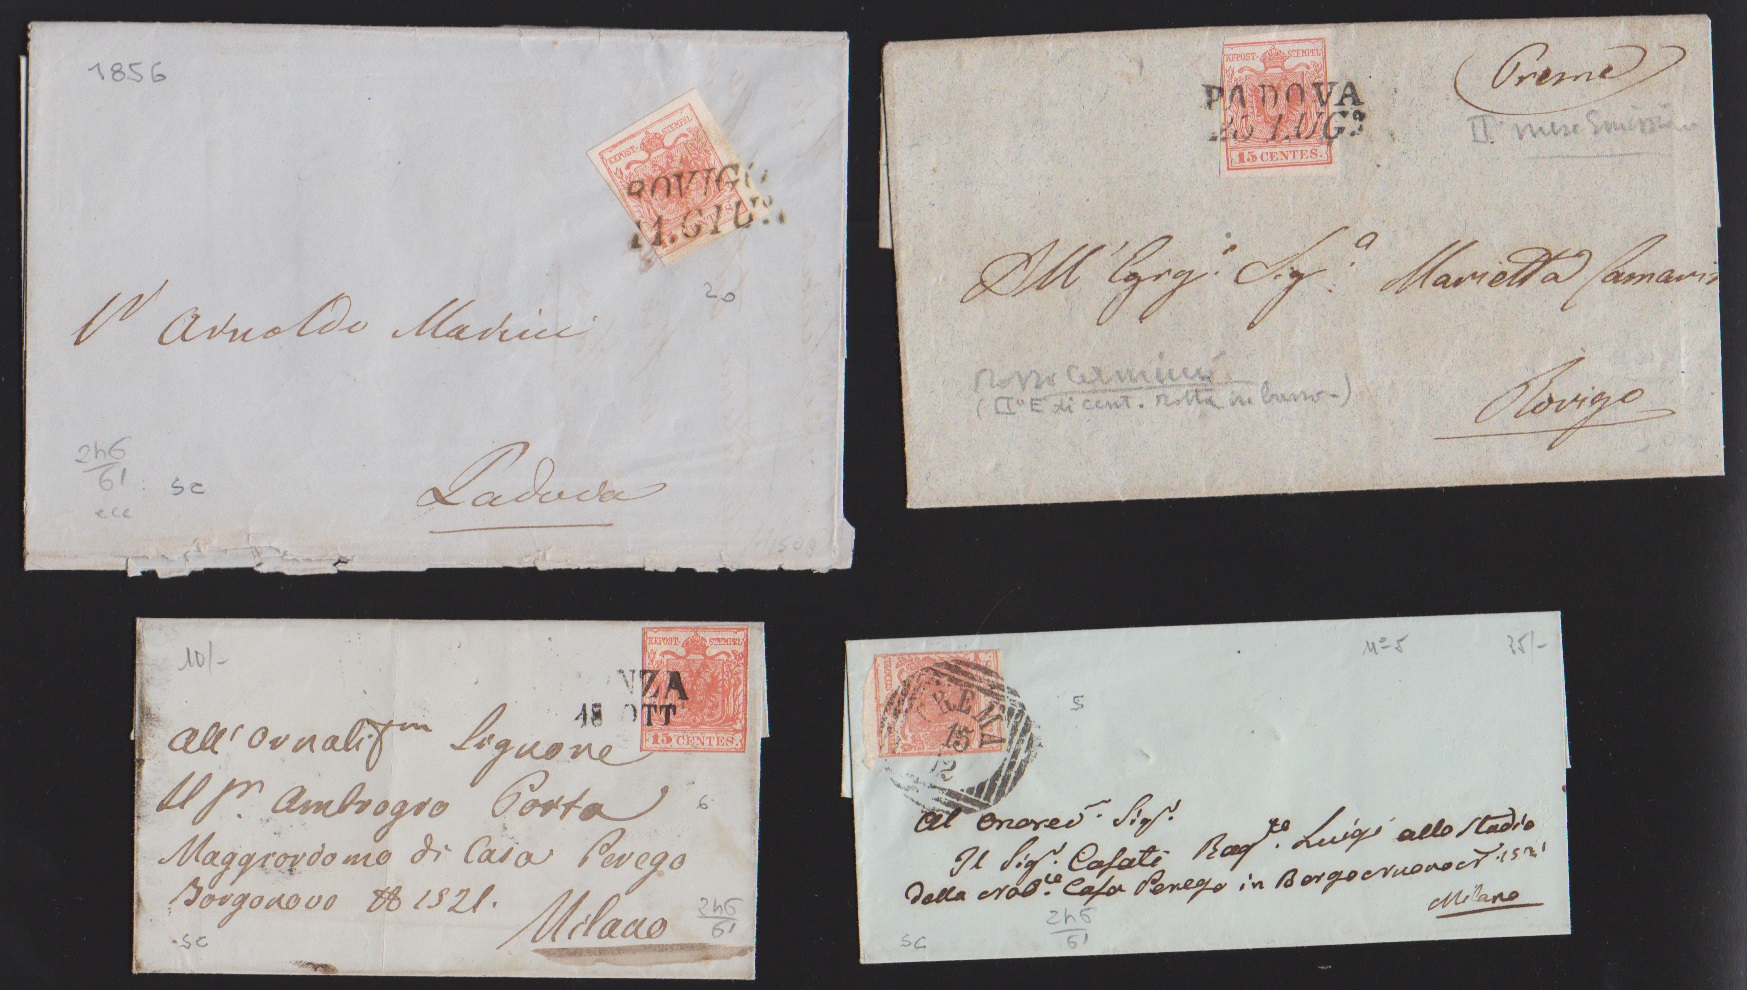 1856
KKPOST-STEMPEL
ROVIGO
11.GIUG
CENTES
20
Arnoldo
Padova
246
61
sc
KKPOST-STEMPEL
PADOVA
LUG
15 CENTES.
Preme
II° mese Emissione
All' Egrg.° Sig.ª Marietta
Rovigo
rosso
(II° E di cent. rotta in basso-)
10/-
KKPOST-STEMPEL
NZA
18 OTT
15 CENTES.
All' Ornatis.mo Signore
Il Sr. Ambrogio Porta
Maggiordomo di Casa Perego
Borgonovo 1521.
Milano
6
246
61
sc
n=5
35/-
5
CREMA
15
12
Al Onorev. Sigr.
Il Sigr. Casati Rag.to Luigi allo Stadio
della Casa Perego in Borgo nuovo 1521
Milano
246
61
sc